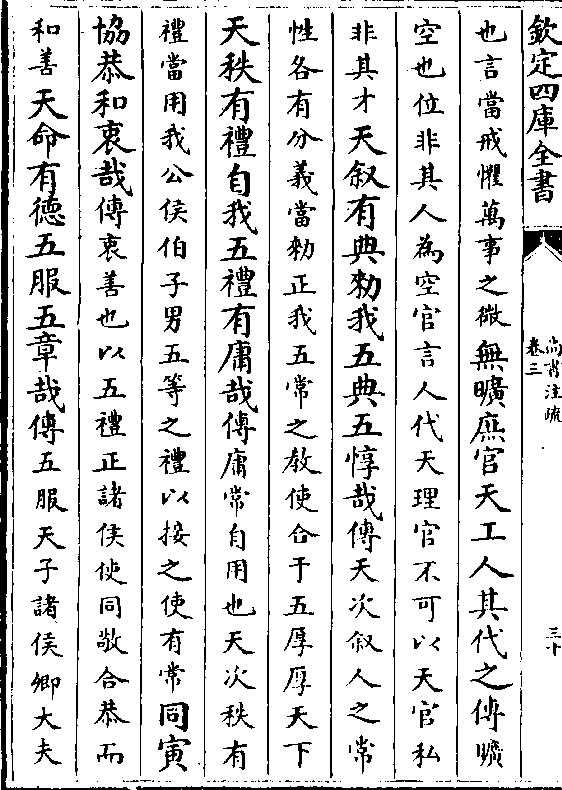 欽定四庫全書
尚書注疏
卷三
三十
也言當戒懼萬事之微無曠庶官天工人其代之傳曠
空也位非其人為空官言人代天理官不可以天官私
非其才天敘有典勑我五典五惇哉傳天次敘人之常
性各有分義當勑正我五常之教使合于五厚厚天下
天秩有禮自我五禮有庸哉傳庸常自用也天次秩有
禮當用我公侯伯子男五等之禮以接之使有常同寅
協恭和衷哉傳衷善也以五禮正諸侯使同敬合恭而
和善天命有德五服五章哉傳五服天子諸侯卿大夫